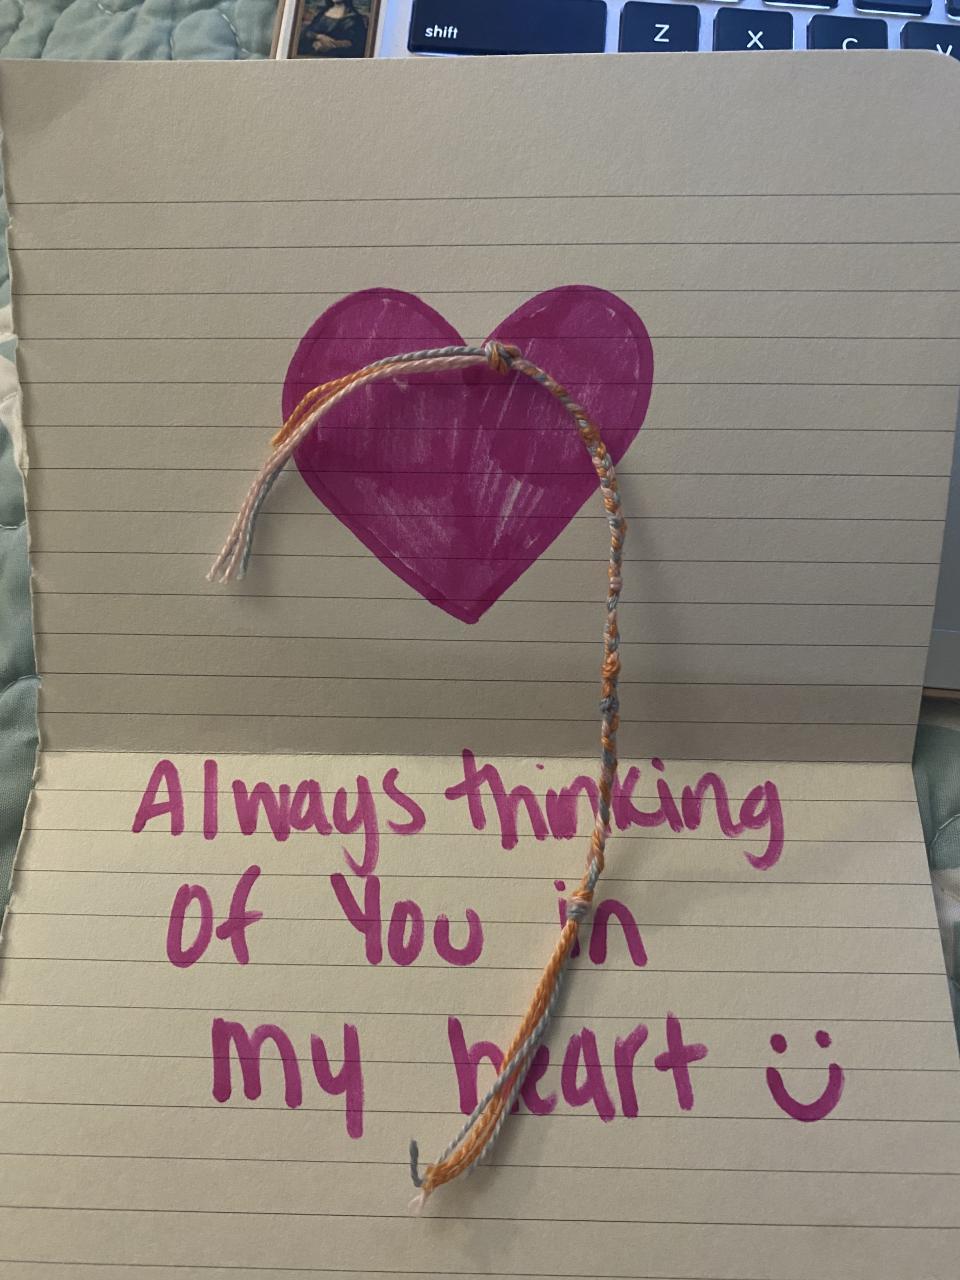 shift Z X C V
Always thinking
Of You in
my heart